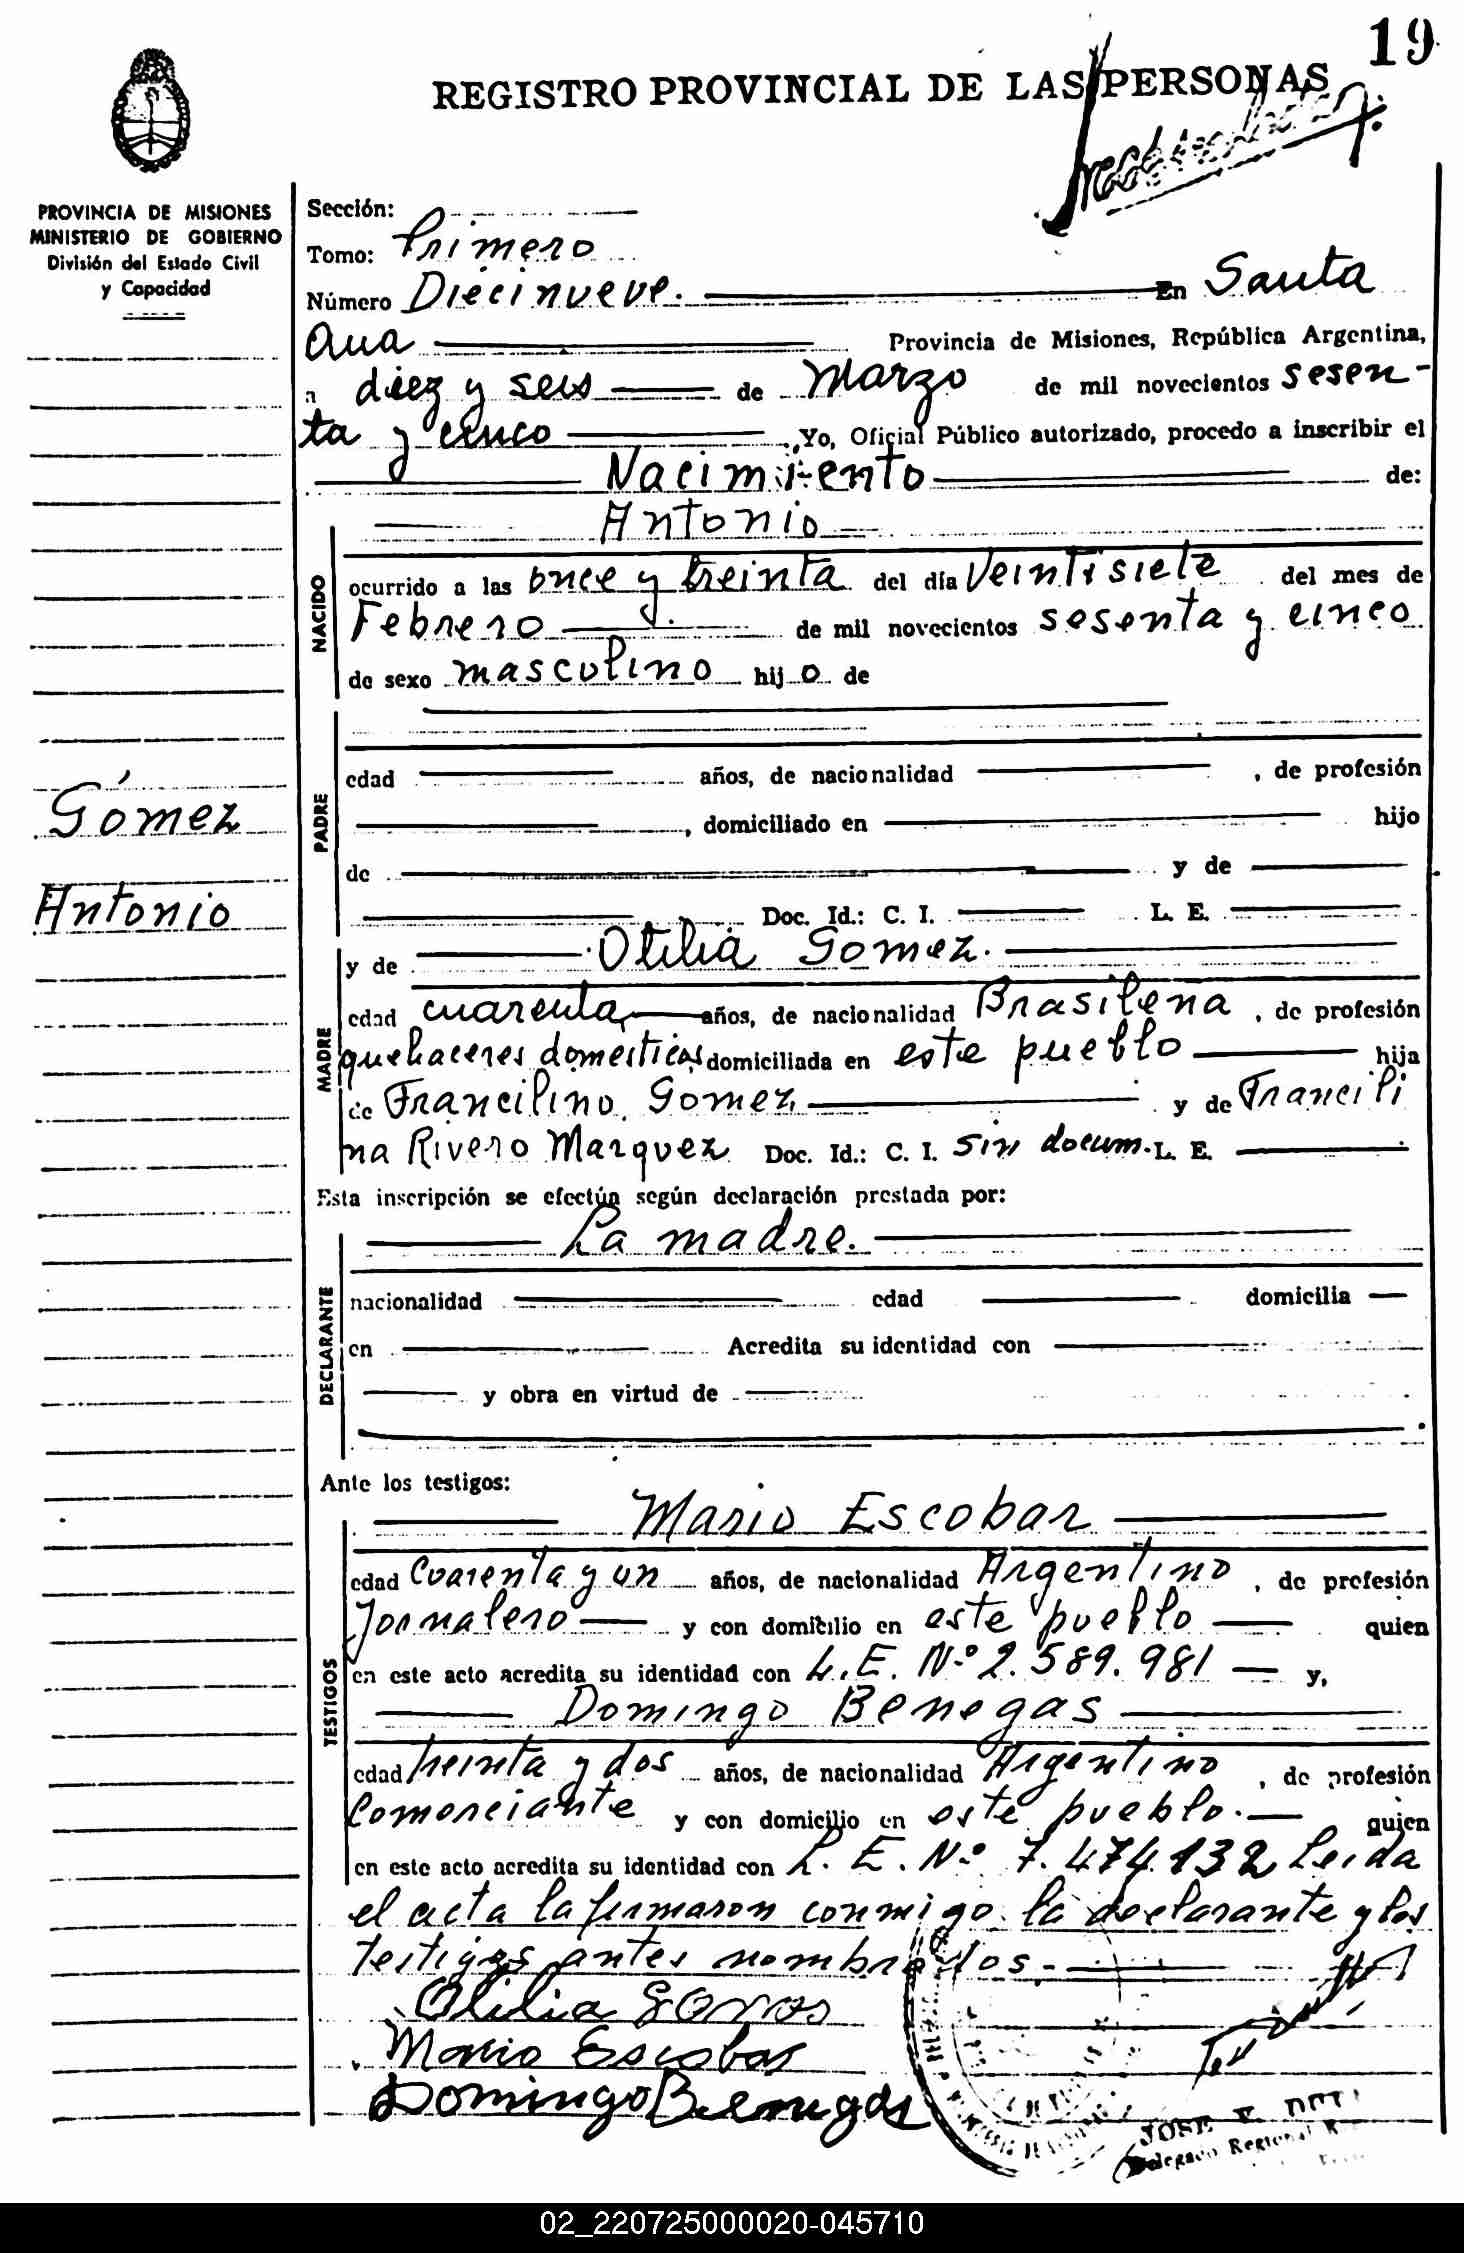 19
REGISTRO PROVINCIAL DE LAS PERSONAS
PROVINCIA DE MISIONES
MINISTERIO DE GOBIERNO
División del Estado Civil
y Capacidad
Sección:
Tomo: Primero
Número Diecinueve. En Santa
Ana Provincia de Misiones, República Argentina,
a diez y seis de Marzo de mil novecientos sesen-
ta y cinco, Yo, Oficial Público autorizado, procedo a inscribir el
Nacimiento de:
Antonio
NACIDO
ocurrido a las once y treinta del día Veintisiete del mes de
Febrero de mil novecientos sesenta y cinco
de sexo masculino hijo de
PADRE
edad años, de nacionalidad , de profesión
, domiciliado en hijo
de y de
Doc. Id.: C. I. L. E.
Gómez
Antonio
MADRE
y de Otilia Gomez.
edad cuarenta años, de nacionalidad Brasilena, de profesión
quehaceres domesticos domiciliada en este pueblo hija
de Francilino Gomez y de Francili
na Rivero Marquez Doc. Id.: C. I. sin docum. L. E.
Esta inscripción se efectúa según declaración prestada por:
La madre.
DECLARANTE
nacionalidad edad domicilia
en Acredita su identidad con
y obra en virtud de
Ante los testigos:
TESTIGOS
Mario Escobar
edad Cuarenta y un años, de nacionalidad Argentino, de profesión
Jornalero y con domicilio en este pueblo quien
en este acto acredita su identidad con L. E. Nº 2.589.981 y,
Domingo Benegas
edad treinta y dos años, de nacionalidad Argentino, de profesión
Comerciante y con domicilio en este pueblo. quien
en este acto acredita su identidad con L. E. Nº 7.474.132 Leida
el acta la firmaron conmigo la declarante y los
testigos antes nombrados.
Otilia Gomes
Mario Escobar
Domingo Benegas
JOSE
Delegado Regional
02_220725000020-045710